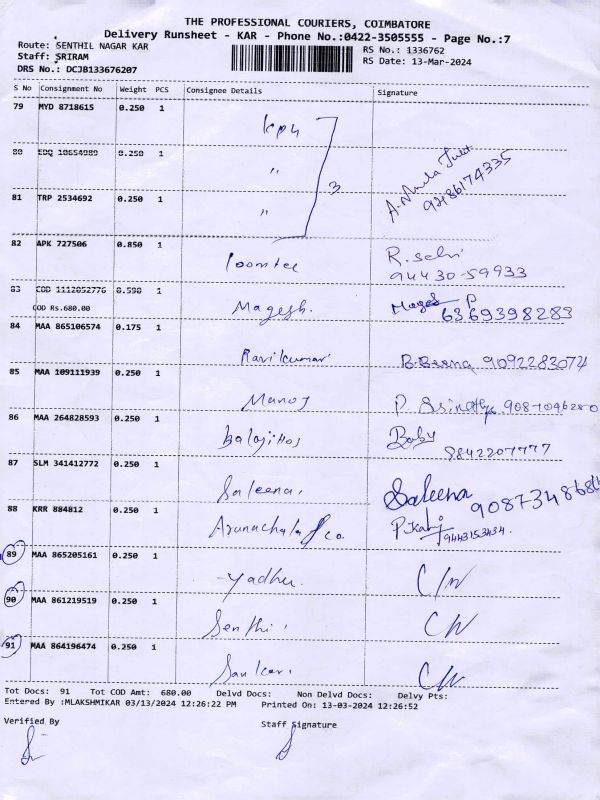 THE PROFESSIONAL COURIERS, COIMBATORE
Delivery Runsheet - KAR - Phone No.:0422-3505555 - Page No.:7
Route: SENTHIL NAGAR KAR RS No.: 1336762
Staff: SRIRAM RS Date: 13-Mar-2024
DRS No.: DCJB133676207
S No Consignment No Weight PCS Consignee Details Signature
79 MYD 8718615 0.250 1 kph
80 EDQ 10654989 0.250 1 " 3
81 TRP 2534692 0.250 1 " 9486174335
82 APK 727506 0.850 1 loomtee R. selvi
94430-59933
83 COD 1112052776 0.590 1 Magesh. Magesh P
COD Rs.680.00 6369398283
84 MAA 865106574 0.175 1 Ravikumar 9092283074
85 MAA 109111939 0.250 1 Manoj P
86 MAA 264828593 0.250 1 Balaji Hos Baby
9842207777
87 SLM 341412772 0.250 1 Saleena Saleena
88 KRR 884812 0.250 1 Arunachala & co. P.
9443153434.
89 MAA 865205161 0.250 1 Yadhu C/N
90 MAA 861219519 0.250 1 Senthil CN
91 MAA 864196474 0.250 1 Sankari C/N
Tot Docs: 91 Tot COD Amt: 680.00 Delvd Docs: Non Delvd Docs: Delvy Pts:
Entered By :MLAKSHMIKAR 03/13/2024 12:26:22 PM Printed On: 13-03-2024 12:26:52
Verified By Staff Signature